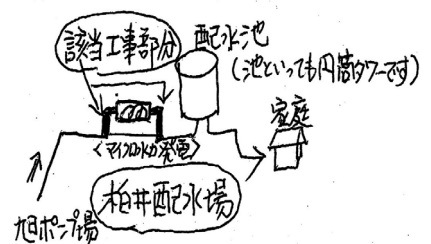 該当工事部分
配水池
(池といっても円筒タワーです)
家庭
<マイクロ水力発電>
柏井配水場
旭ポンプ場